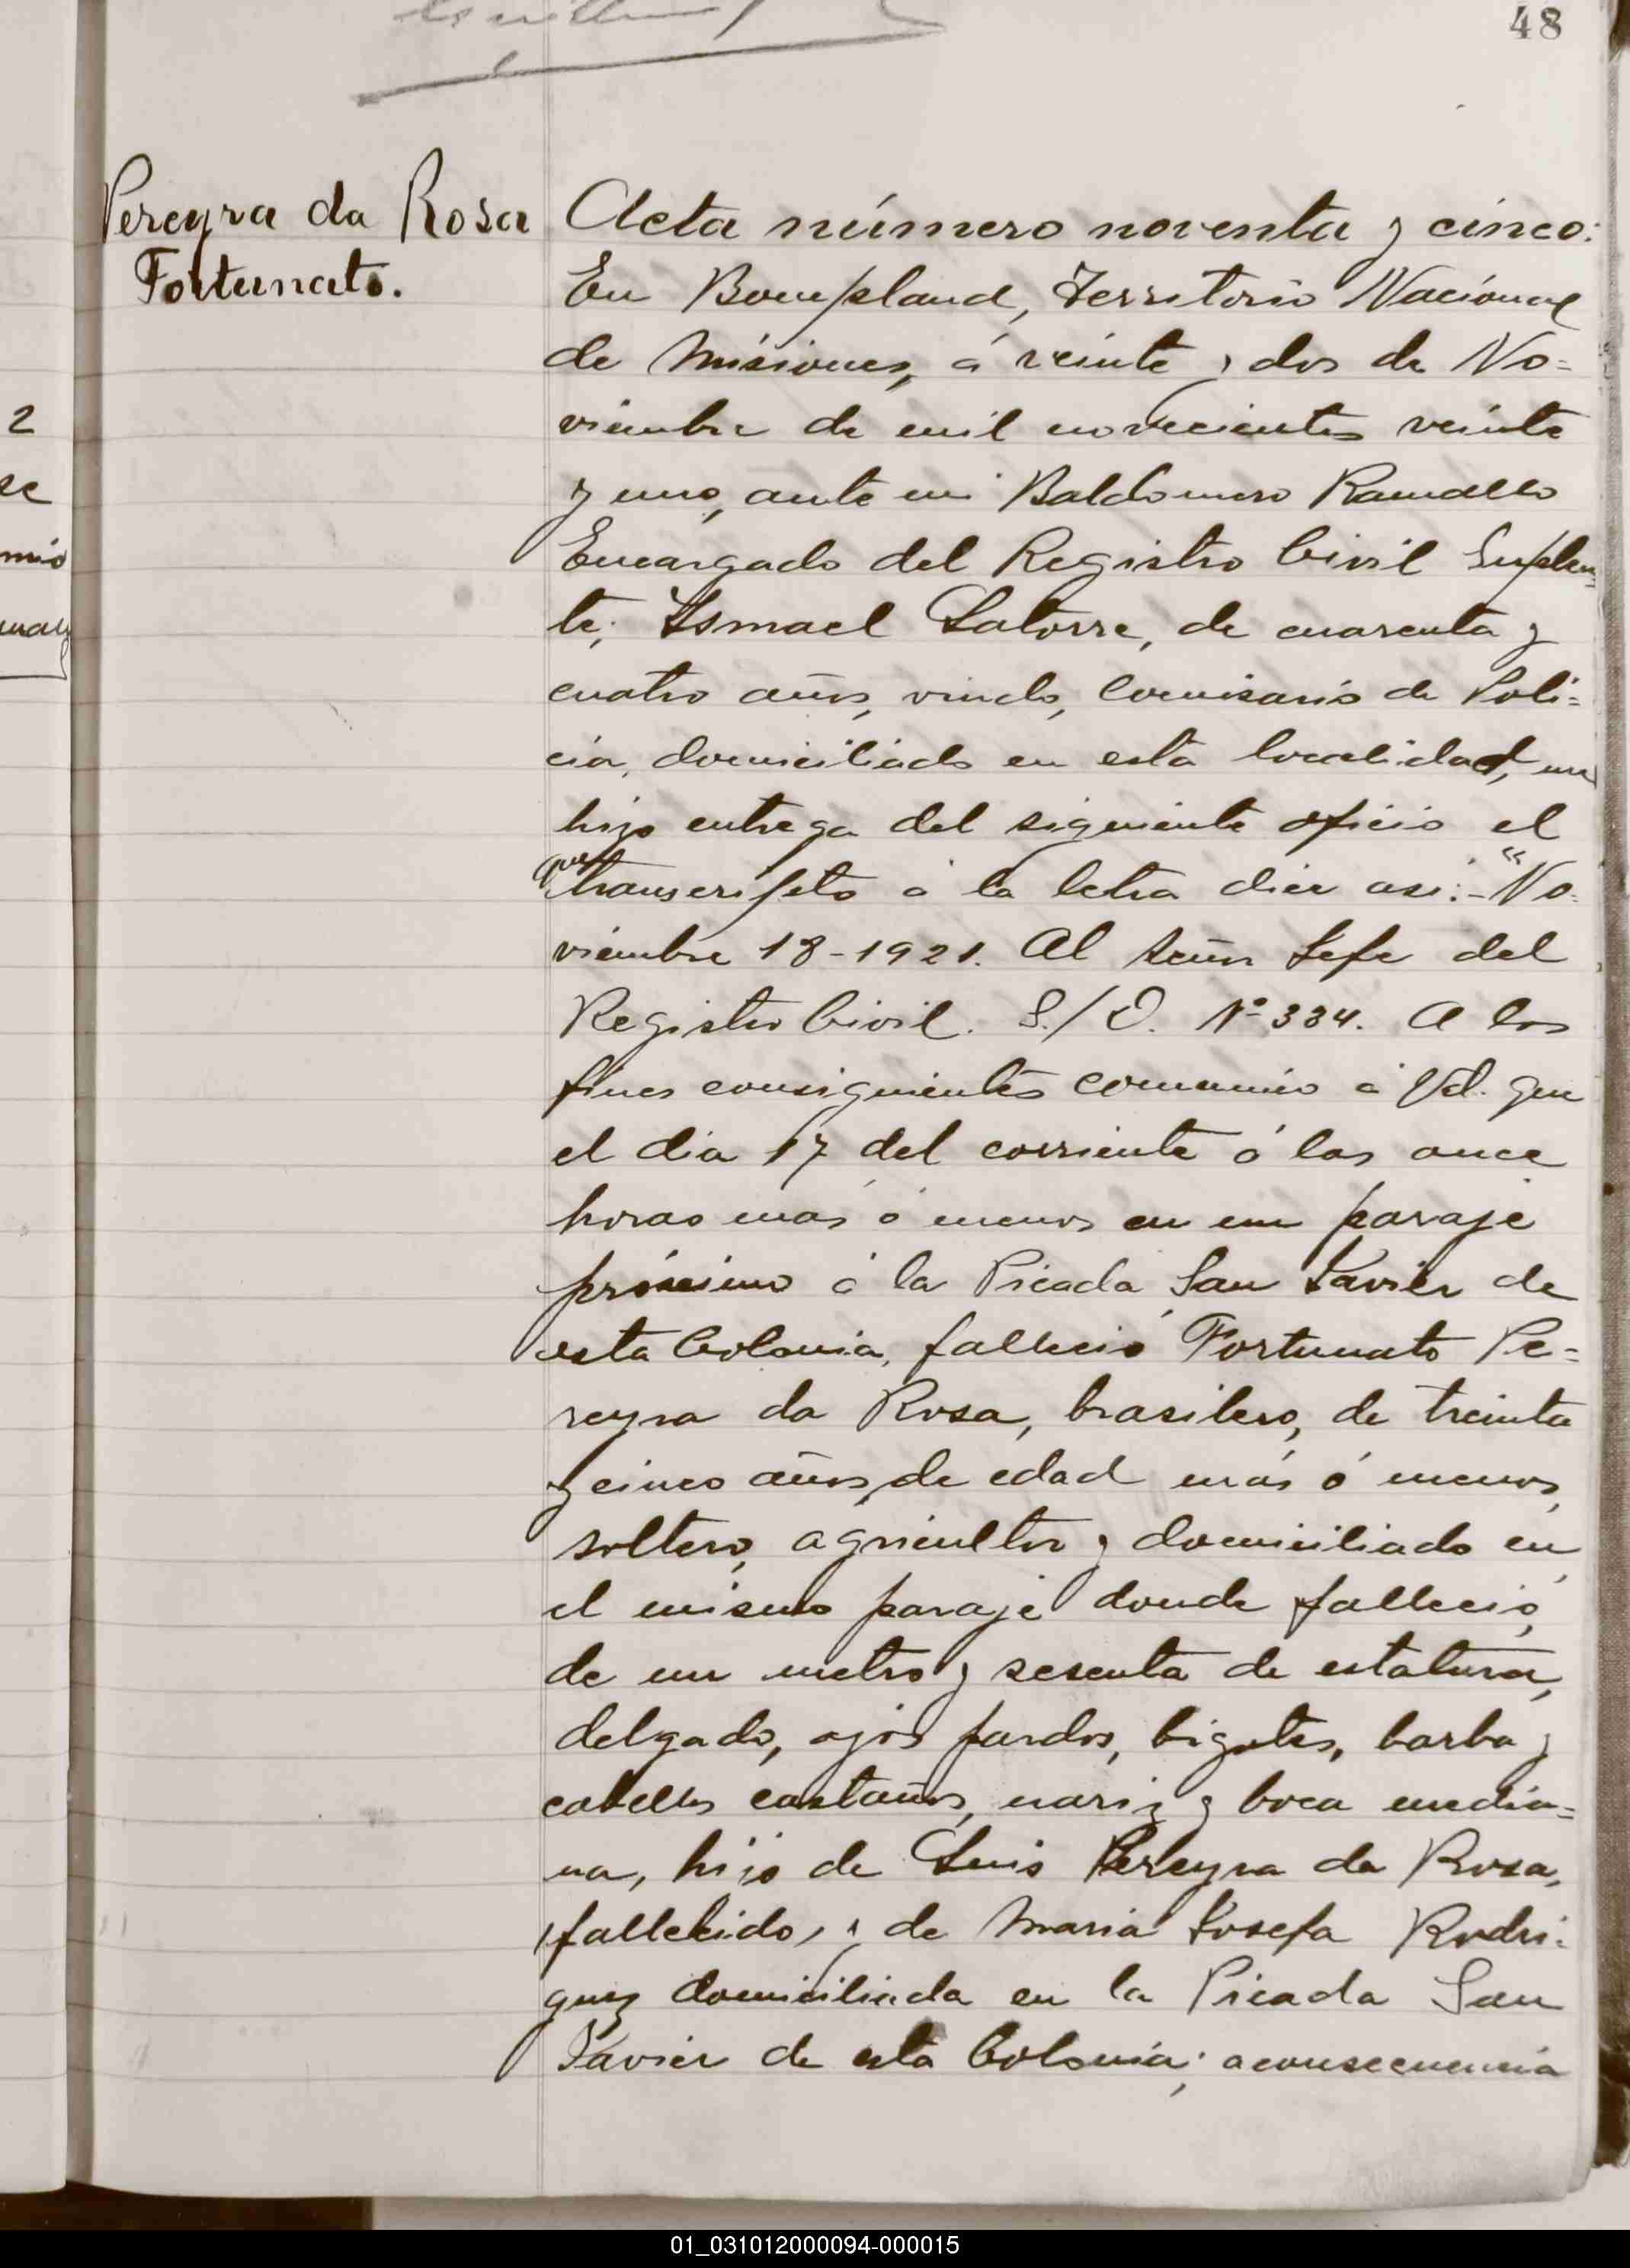 48
Pereyra da Rosa
Fortunato.
Acta número noventa y cinco:
En Bompland, Territorio Nacional
de Misiones, á veinte y dos de No=
viembre de mil novecientos veinte
y uno, ante mi Baldomero Ramallo
Encargado del Registro Civil Suplen=
te; Ismael Latorre, de cuarenta y
cuatro años, viudo, Comisario de Poli=
cia, domiciliado en esta localidad, me
hizo entrega del siguiente oficio el
que transcripto á la letra dice asi:- "No=
viembre 18-1921. Al señor Jefe del
Registro Civil. S./D. Nº 334. A los
fines consiguientes comunico á Vd. que
el dia 17 del corriente á las once
horas más ó menos en un paraje
próximo á la Picada San Javier de
esta Colonia, falleció Fortunato Pe=
reyra da Rosa, brasilero, de treinta
y cinco años de edad más ó menos,
soltero, agricultor y domiciliado en
el mismo paraje donde falleció,
de un metro y sesenta de estatura,
delgado, ojos pardos, bigotes, barba y
cabellos castaños, nariz y boca media=
na, hijo de Luis Pereyra da Rosa,
fallecido, y de Maria Josefa Rodri=
guez domiciliada en la Picada San
Javier de esta Colonia; a consecuencia
2
se
mio
01_031012000094-000015